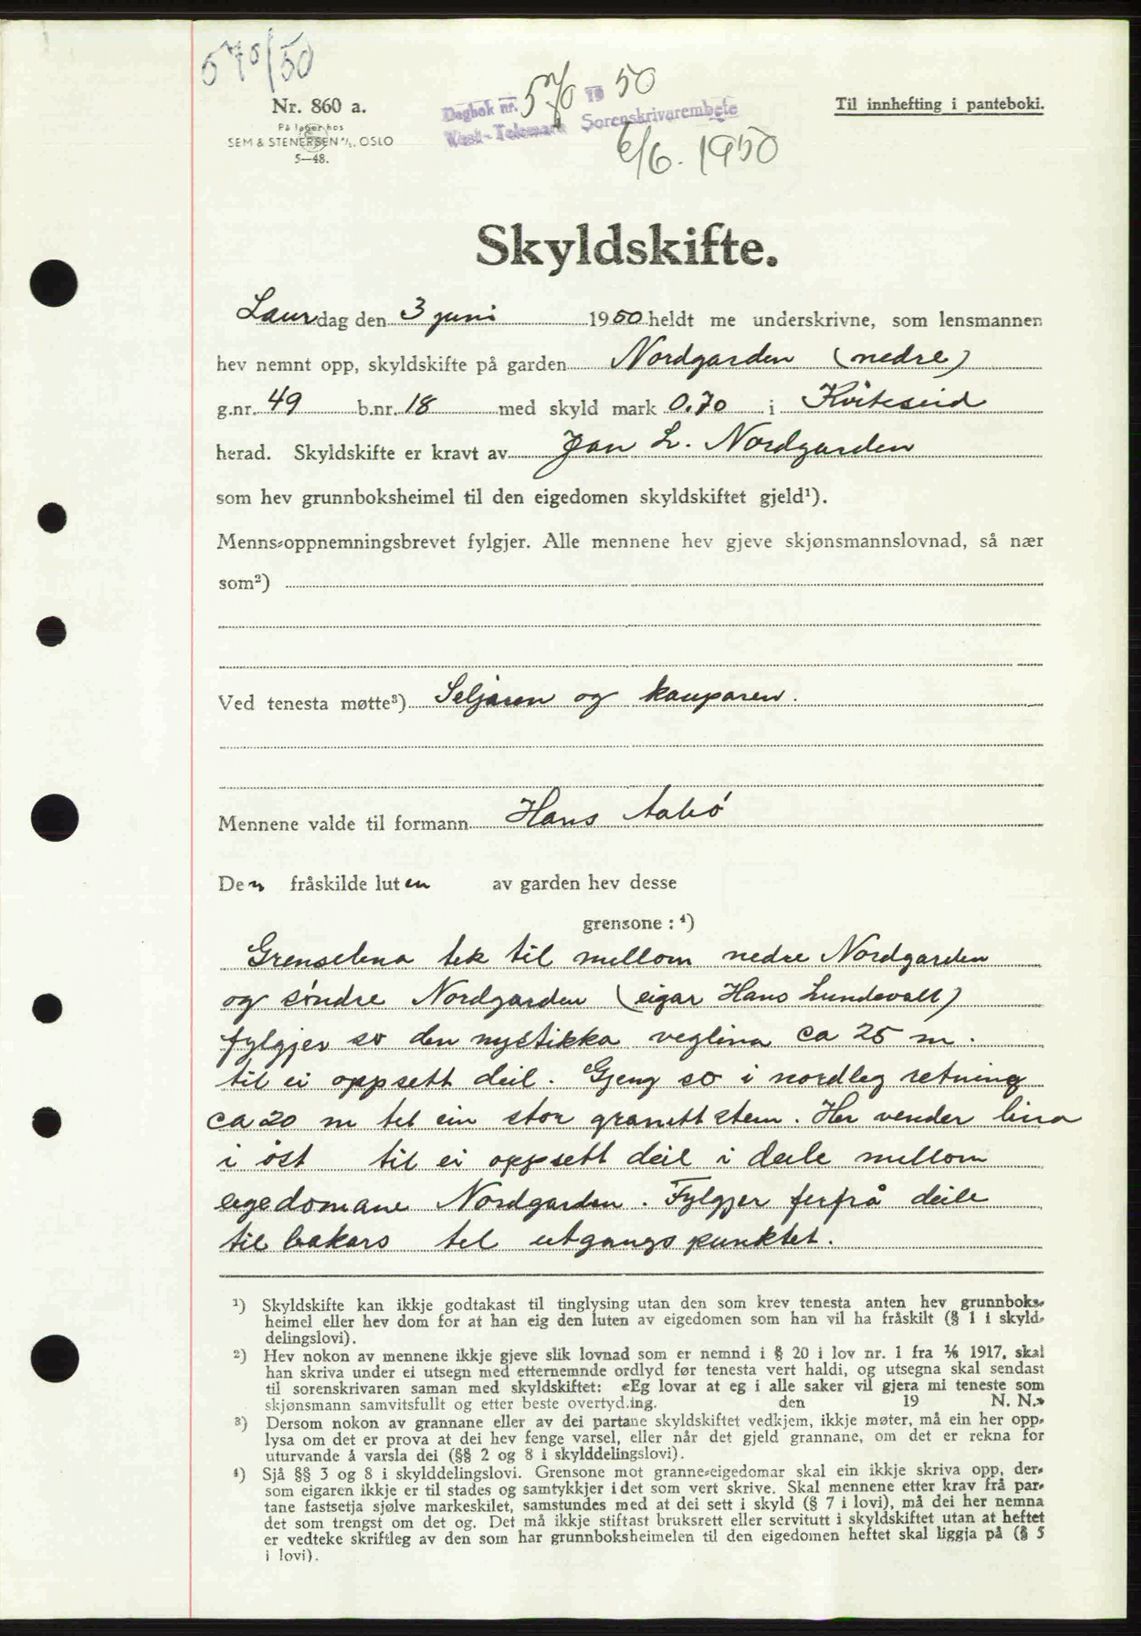 570/50
Nr. 860 a.
På lager hos
SEM & STENERSEN A/S, OSLO
5—48.
Dagbok nr. 570 19 50
Vest-Telemark Sorenskrivarembete
6/6. 1950
Til innhefting i panteboki.
Skyldskifte.
Laurdag den 3 juni 1950 heldt me underskrivne, som lensmannen
hev nemnt opp, skyldskifte på garden Nordgarden (nedre)
g.nr. 49 b.nr. 18 med skyld mark 0.70 i Kviteseid
herad. Skyldskifte er kravt av Jon L. Nordgarden
som hev grunnboksheimel til den eigedomen skyldskiftet gjeld¹).
Menns-oppnemningsbrevet fylgjer. Alle mennene hev gjeve skjønsmannslovnad, så nær
som²)
Ved tenesta møtte³) Seljaren og kauparen.
Mennene valde til formann Hans Aabö
Den fråskilde luten av garden hev desse
grensone : ⁴)
Grenselina tek til mellom nedre Nordgarden
og söndre Nordgarden (eigar Hans Lundevall)
fylgjer so den nystikka veglina ca 25 m.
til ei oppsett deil. Gjeng so i nordleg retning
ca 20 m til ein stor granittstein. Her vender lina
i öst til ei oppsett deil i deile mellom
eigedomane Nordgarden. Fylgjer herfrå deile
til bakars til utgangspunktet.
¹) Skyldskifte kan ikkje godtakast til tinglysing utan den som krev tenesta anten hev grunnboks-
heimel eller hev dom for at han eig den luten av eigedomen som han vil ha fråskilt (§ 1 i skyld-
delingslovi).
²) Hev nokon av mennene ikkje gjeve slik lovnad som er nemnd i § 20 i lov nr. 1 fra 1/6 1917, skal
han skriva under ei utsegn med etternemnde ordlyd før tenesta vert haldi, og utsegna skal sendast
til sorenskrivaren saman med skyldskiftet: «Eg lovar at eg i alle saker vil gjera mi teneste som
skjønsmann samvitsfullt og etter beste overtyding. den 19 N. N.»
³) Dersom nokon av grannane eller av dei partane skyldskiftet vedkjem, ikkje møter, må ein her opp-
lysa om det er prova at dei hev fenge varsel, eller når det gjeld grannane, om det er rekna for
uturvande å varsla dei (§§ 2 og 8 i skylddelingslovi).
⁴) Sjå §§ 3 og 8 i skylddelingslovi. Grensone mot granne-eigedomar skal ein ikkje skriva opp, der-
som eigaren ikkje er til stades og samtykkjer i det som vert skrive. Skal mennene etter krav frå par-
tane fastsetja sjølve markeskilet, samstundes med at dei sett i skyld (§ 7 i lovi), må dei her nemna
det som trengst om det og. Det må ikkje stiftast bruksrett eller servitutt i skyldskiftet utan at heftet
er vedteke skriftleg av den som har grunnboksheimelen til den eigedomen heftet skal liggja på (§ 5
i lovi).